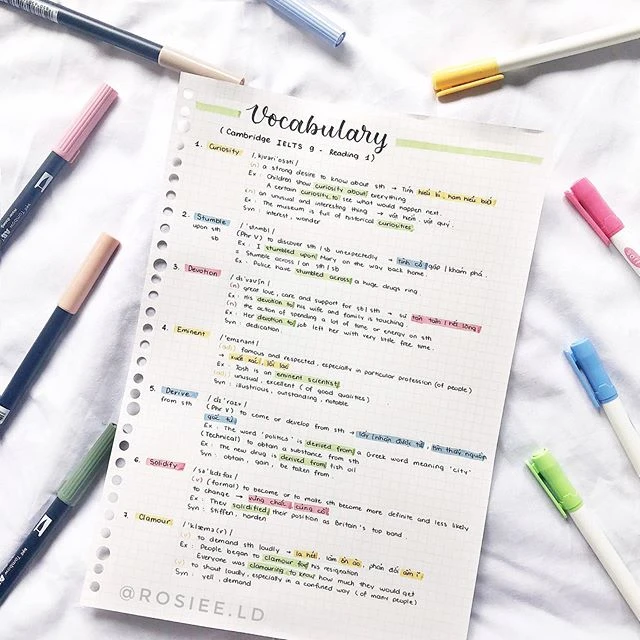 Vocabulary
(Cambridge IELTS 9 - Reading 1)
1. Curiosity
/ˌkjʊəriˈɒsəti/
(n) a strong desire to know about sth → Tính hiếu kì, ham hiểu biết
Ex : Children show curiosity about everything.
A certain curiosity to see what would happen next.
(n) an unusual and interesting thing → vật hiếm - vật quý.
Ex : The museum is full of historical curiosities
Syn : interest, wonder
2. Stumble upon sth sb
/ˈstʌmbl/
(Phr V) to discover sth | sb unexpectedly → tình cờ gặp | khám phá.
Ex : I stumbled upon Mary on the way back home.
= Stumble across / on sth | sb
Ex : Police have stumbled across a huge drugs ring
3. Devotion
/dɪˈvəʊʃn/
(n) great love, care and support for sb | sth → sự tận tuỵ | hết lòng
Ex : His devotion to his wife and family is touching.
(n) the action of spending a lot of time or energy on sth
Ex : Her devotion to job left her with very little free time.
Syn : dedication
4. Eminent
/ˈemɪnənt/
(adj) famous and respected, especially in particular profession (of people)
→ xuất sắc, lỗi lạc
Ex : Josh is an eminent scientist
(adj) unusual, excellent (of good qualities)
Syn : illustrious, outstanding, notable
5. Derive from sth
(Phr V) to come or develop from sth →
gốc từ
Ex : The word 'politics' is derived from a Greek word meaning 'city'
(Technical) to obtain a substance from sth
Ex : the new drug is derived from fish oil
Syn : obtain, gain, be taken from
6. Solidify
/səˈlɪdɪfaɪ/
(v) (formal) to become or to make sth become more definite and less likely
to change → vững chắc, củng cố
Ex : They solidified their position as Britain's top band.
Syn : Stiffen, harden
7. Clamour
/ˈklæmə(r)/
(v) to demand sth loudly → la hét, làm ồn ào, phản đối ầm ĩ
Ex : People began to clamour for his resignation
Everyone was clamouring to know how much they would get
(v) to shout loudly, especially in a confused way (of many people)
Syn : yell, demand
@ROSIEE.LD